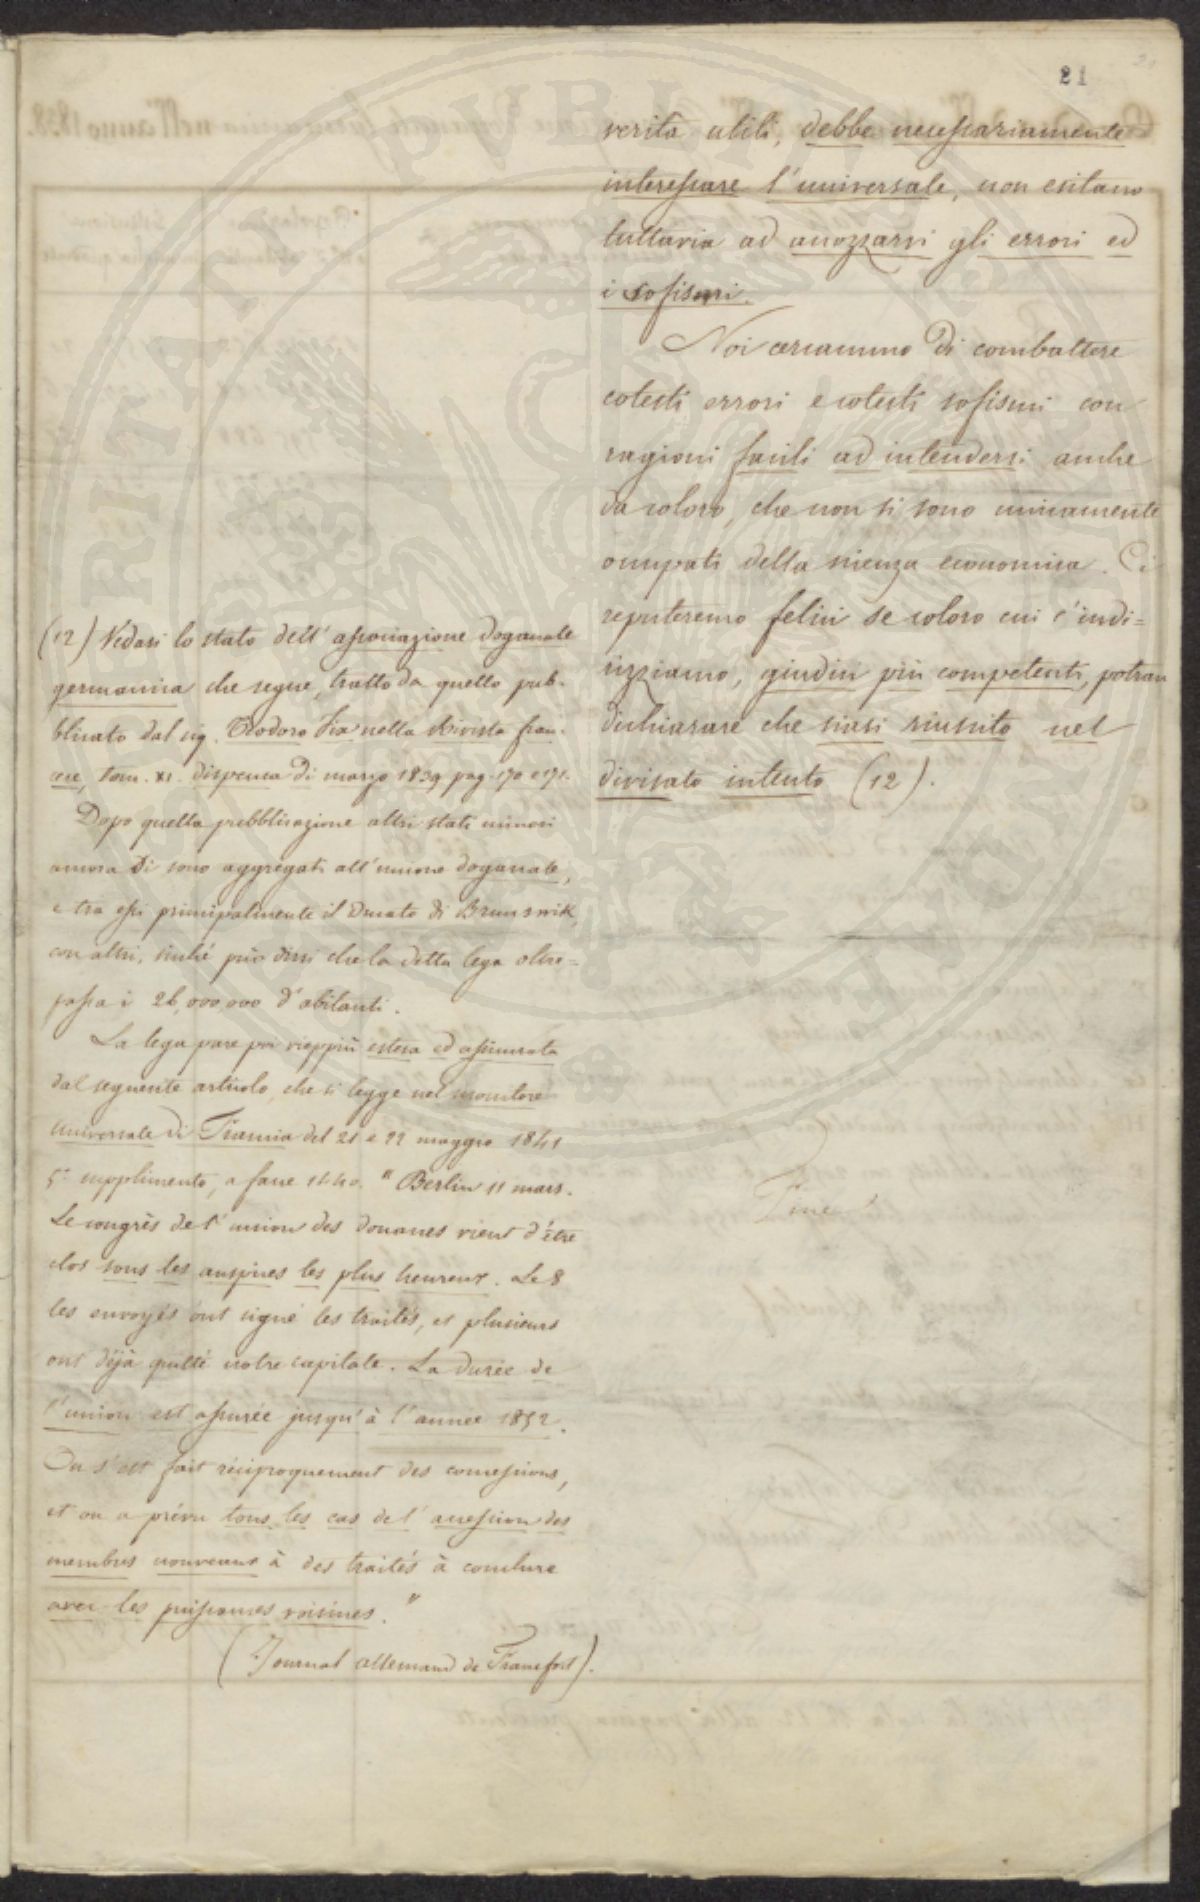 21
verità utili, debbe necessariamente
interessare l'universale, non esitano
tuttavia ad accozzarvi gli errori ed
i sofismi.
Noi cercammo di combattere
cotesti errori e cotesti sofismi con
ragioni facili ad intendersi anche
da coloro, che non si sono unicamente
occupati della scienza economica. Ci
reputeremo felici se coloro cui c'indi=
rizziamo, giudici più competenti, potran
dichiarare che siasi riuscito nel
divisato intento (12).
Fine
(12) Vedasi lo stato dell'associazione doganale
germanica che segue, tratto da quello pub-
blicato dal sig. Teodoro Fix nella Rivista fran-
cese, tom. XI. dispensa di marzo 1839 pag. 170 e 171.
Dopo quella pubblicazione altri stati minori
ancora si sono aggregati all'unione doganale,
e tra essi principalmente il Ducato di Brunswik,
con altri, sicché può dirsi che la detta lega oltre=
passa i 26,000,000 d'abitanti.
La lega pare poi vieppiù estesa ed assicurata
dal seguente articolo, che si legge nel monitore
universale di Francia del 21 e 22 maggio 1841
5.º supplimento, a facce 1440. "Berlin 11 mars.
Le congrès de l'union des douanes vient d'être
clos sous les auspices les plus heureux. Le 8
les envoyés ont signé les traités, et plusieurs
ont déjà quitté notre capitale. La durée de
l'union est assurée jusqu'à l'année 1852.
On s'est fait réciproquement des concessions,
et on a prévu tous les cas de l'accession des
membres nouveaux à des traités à conclure
avec les puissances voisines."
(Journal allemand de Francfort).